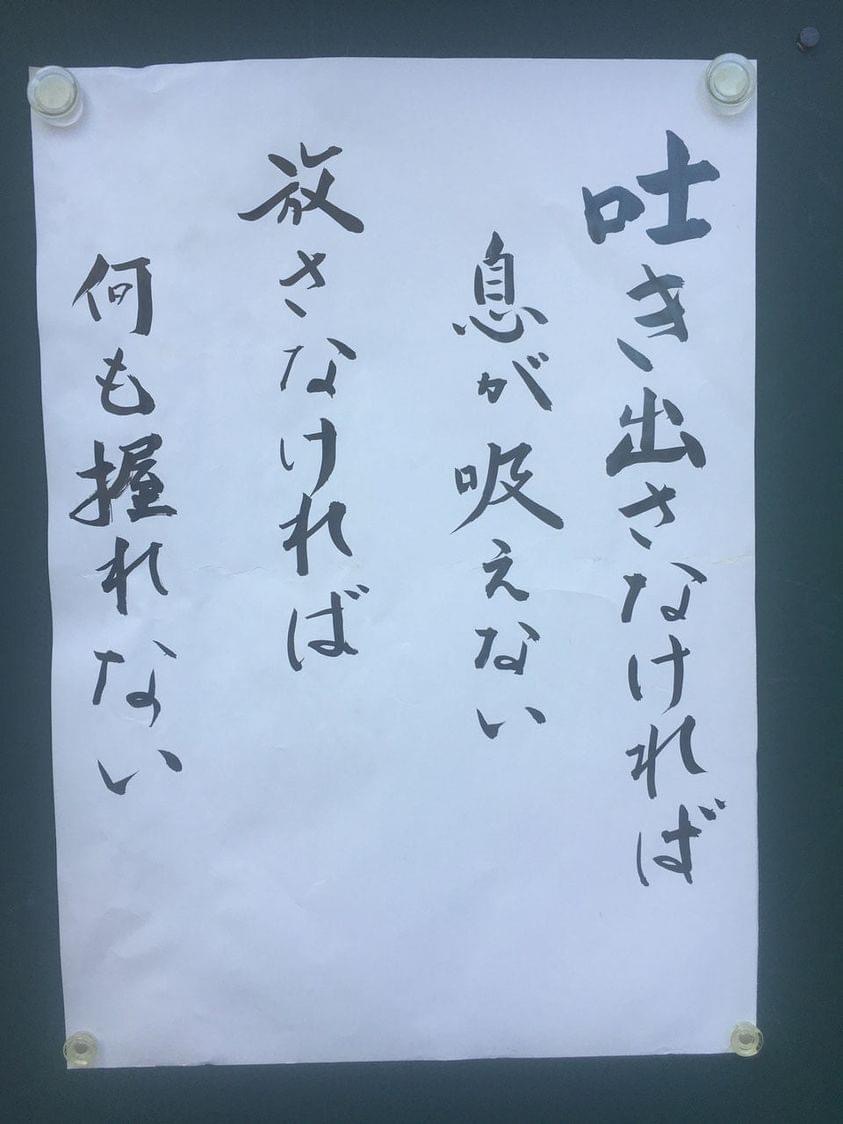 吐き出さなければ
息が吸えない
放さなければ
何も握れない